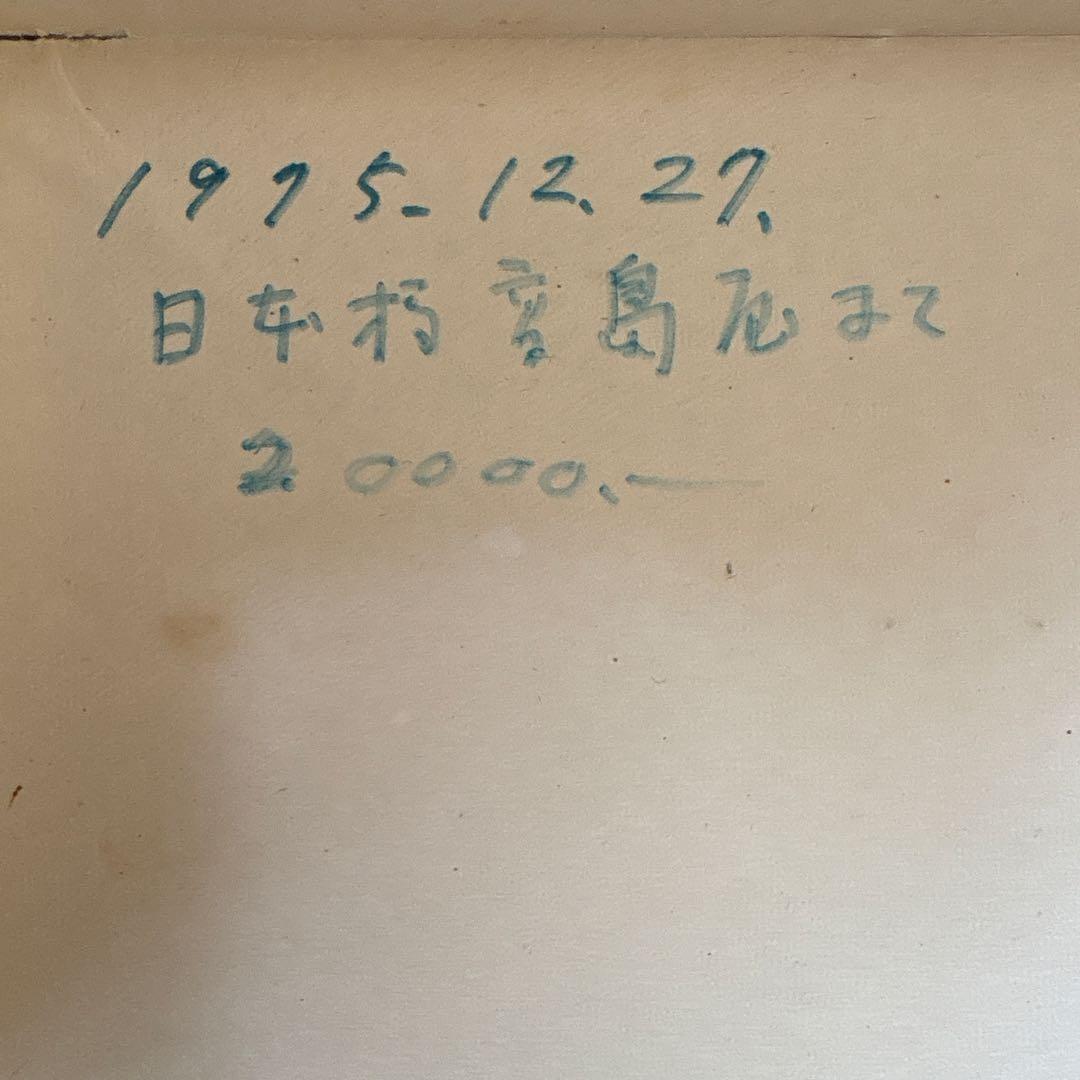 1975. 12. 27.
日本橋高島屋まで
20000.—